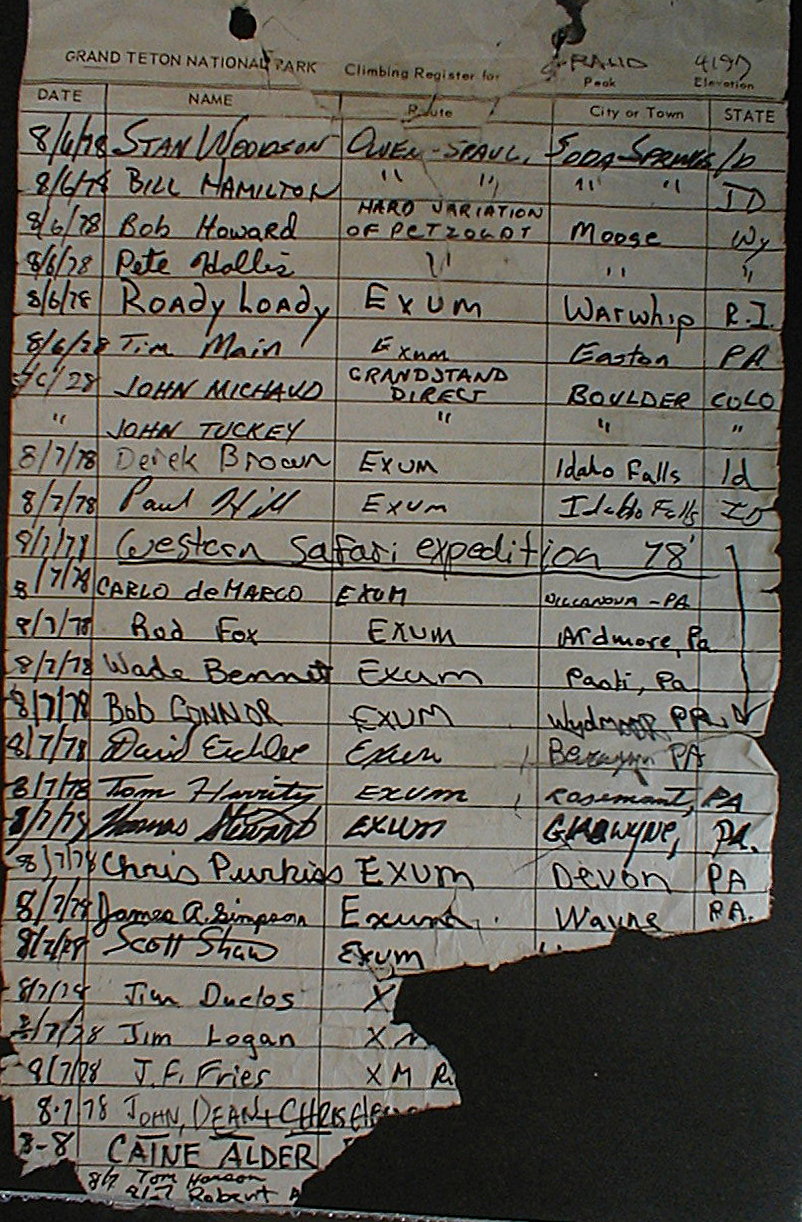 GRAND TETON NATIONAL PARK Climbing Register for GRAND 4197
Peak Elevation
DATE NAME Route City or Town STATE
8/6/78 STAN WOODSON OWEN-SPAUL. SODA SPRINGS ID
8/6/78 BILL HAMILTON " " " " ID
8/6/78 Bob Howard HARD VARIATION OF PETZOLDT Moose Wy
8/6/78 Pete Hollis " " "
8/6/78 ROADY LOADY EXUM WARWHIP R.I.
8/6/78 Tim Main Exum Easton PA
8/6/78 JOHN MICHAUD GRANDSTAND DIRECT BOULDER COLO
" JOHN TUCKEY " " "
8/7/78 Derek Brown EXUM Idaho Falls Id
8/7/78 Paul Hill EXUM Idaho Falls ID
8/7/78 Western Safari expedition 78'
8/7/78 CARLO deMARCO EXUM VILLANOVA - PA
8/7/78 Rod Fox EXUM Ardmore, Pa
8/7/78 Wade Bennett Exum Paoli, Pa
8/7/78 Bob CONNOR EXUM Wydmoor PA.
8/7/78 David Exum Berwyn PA
8/7/78 Tom Harrity EXUM Rosemont, PA
8/7/78 Thomas Stewart EXUM GLADWYNE, PA.
8/7/78 Chris Purkiss EXUM Devon PA
8/7/78 James A. Simpson Exum Wayne PA.
8/7/78 Scott Shaw Exum
8/7/78 Jim Duclos X
8/7/78 Jim Logan X M
8/7/78 J.F. Fries X M R
8.7.78 JOHN, DEAN + CHRIS
8-8 CAINE ALDER
8/7 Tom Hanson
8/7 Robert A